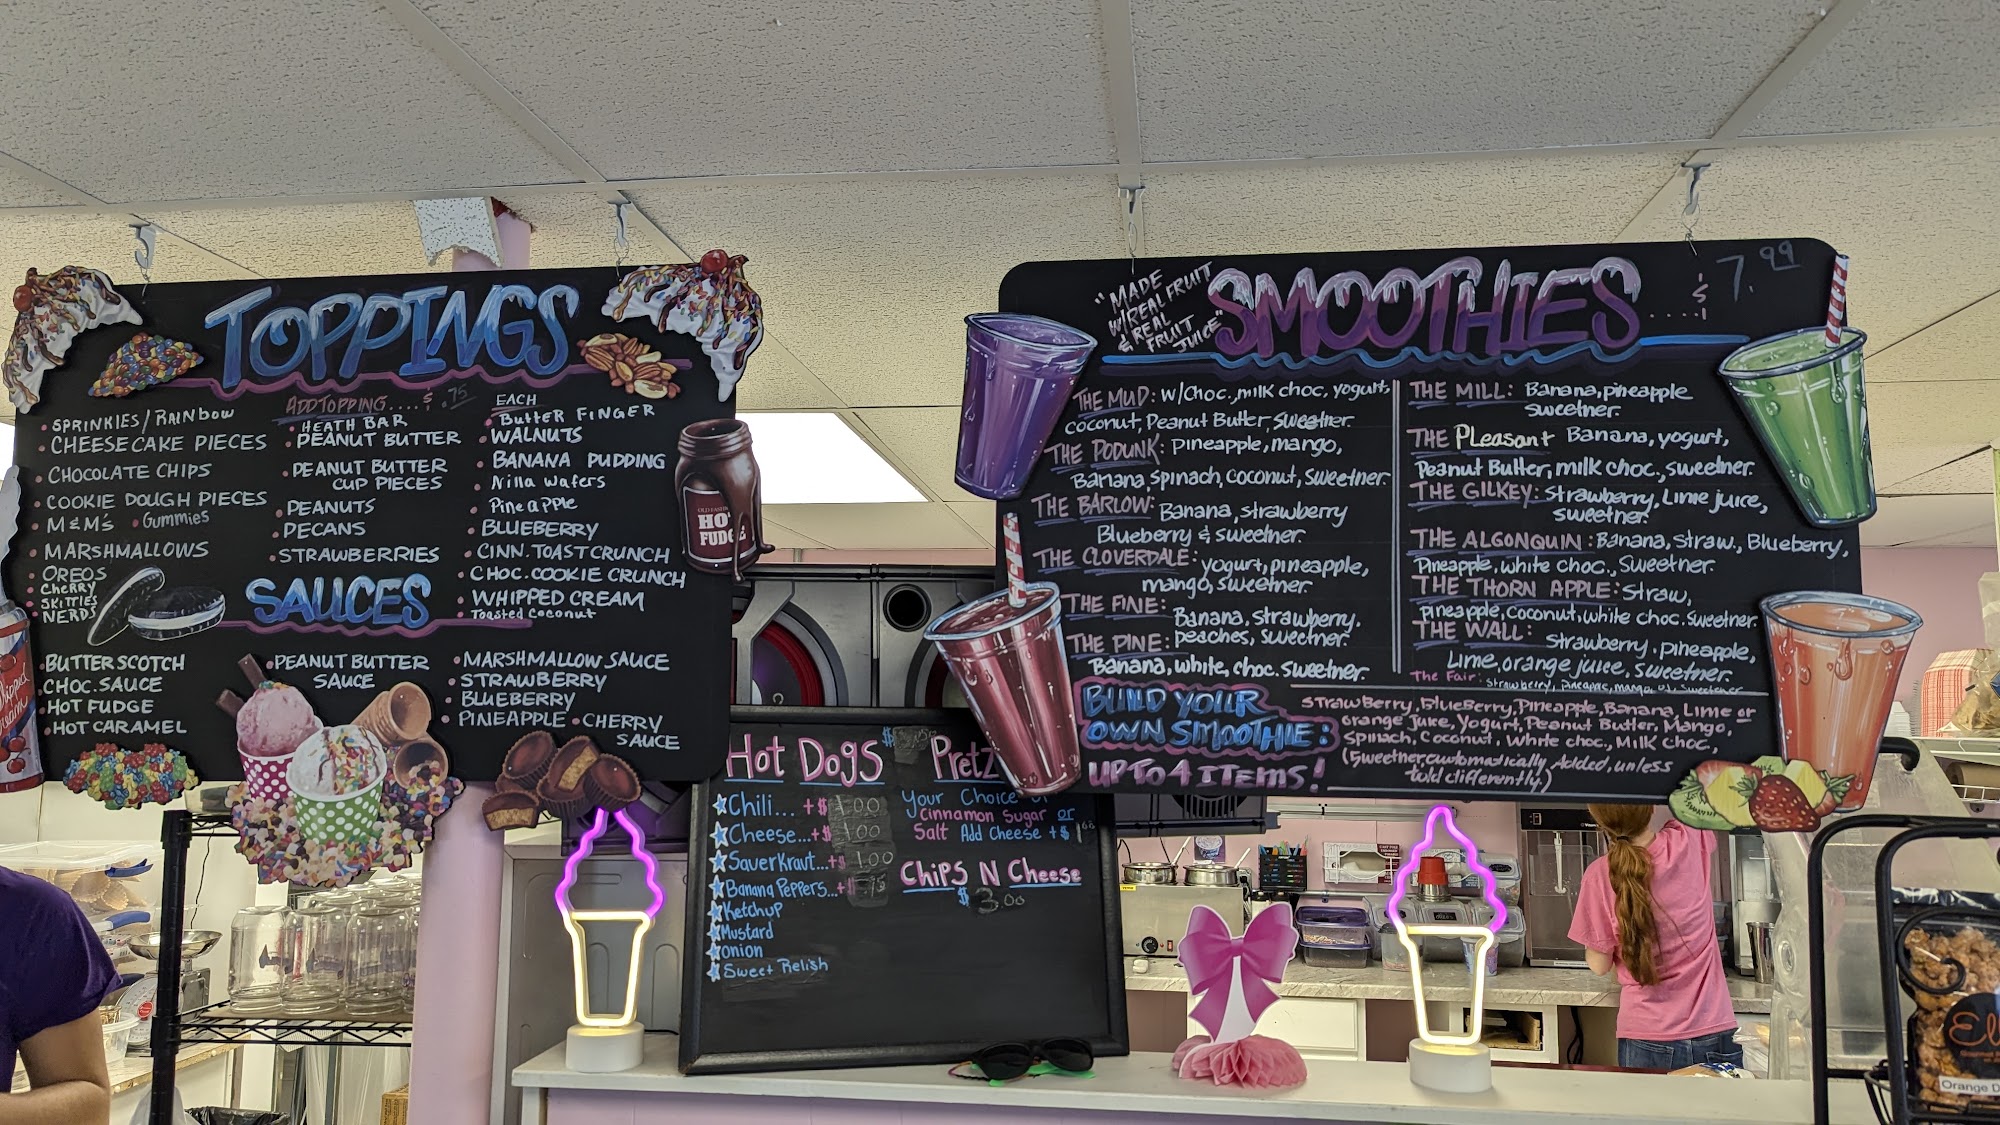 TOPPINGS
ADD TOPPING.... $ .75 EACH
SPRINKLES/RAINBOW
CHEESECAKE PIECES
CHOCOLATE CHIPS
COOKIE DOUGH PIECES
M&M's • Gummies
MARSHMALLOWS
OREOS
CHERRY
SKITTLES
NERDS
HEATH BAR
PEANUT BUTTER
PEANUT BUTTER
CUP PIECES
PEANUTS
PECANS
STRAWBERRIES
BUTTER FINGER
WALNUTS
BANANA PUDDING
Nilla Wafers
Pineapple
BLUEBERRY
CINN. TOAST CRUNCH
CHOC. COOKIE CRUNCH
WHIPPED CREAM
Toasted Coconut
HOT
FUDGE
SAUCES
BUTTERSCOTCH
CHOC. SAUCE
HOT FUDGE
HOT CARAMEL
PEANUT BUTTER
SAUCE
MARSHMALLOW SAUCE
STRAWBERRY
BLUEBERRY
PINEAPPLE • CHERRY
SAUCE
"MADE
W/REAL FRUIT
& REAL
FRUIT
JUICE"
SMOOTHIES.... $ 7.99
THE MUD: W/CHOC., milk choc, yogurt,
coconut, Peanut Butter, Sweetner.
THE PODUNK: Pineapple, mango,
Banana, spinach, coconut, sweetner.
THE BARLOW: Banana, strawberry
Blueberry & sweetner.
THE CLOVERDALE: yogurt, pineapple,
mango, sweetner.
THE FINE: Banana, strawberry,
peaches, sweetner.
THE PINE:
Banana, white, choc. sweetner.
THE MILL: Banana, pineapple
sweetner.
THE PLeasant Banana, yogurt,
Peanut Butter, milk choc., sweetner.
THE GILKEY: Strawberry, Lime juice,
sweetner.
THE ALGONQUIN: Banana, Straw., Blueberry,
Pineapple, white choc., Sweetner.
THE THORN APPLE: Straw,
pineapple, coconut, white choc. sweetner.
THE WALL: Strawberry, pineapple,
Lime, orange juice, sweetner.
The Fair: Strawberry, Pineapple, mango, sweetener
BUILD YOUR
OWN SMOOTHIE:
UP TO 4 ITEMS!
Strawberry, Blueberry, Pineapple, Banana, Lime or
orange Juice, Yogurt, Peanut Butter, Mango,
Spinach, Coconut, White choc., Milk Choc,
(Sweetner, automatically Added, unless
told differently)
Hot Dogs $
Chili... +$ 1.00
Cheese...+$ 1.00
Sauerkraut...+$ 1.00
Banana Peppers...+
Ketchup
Mustard
onion
Sweet Relish
Pretz
Your Choice of
Cinnamon Sugar or
Salt Add Cheese +$
CHIPS N CHEESE
$ 3.00
Orange